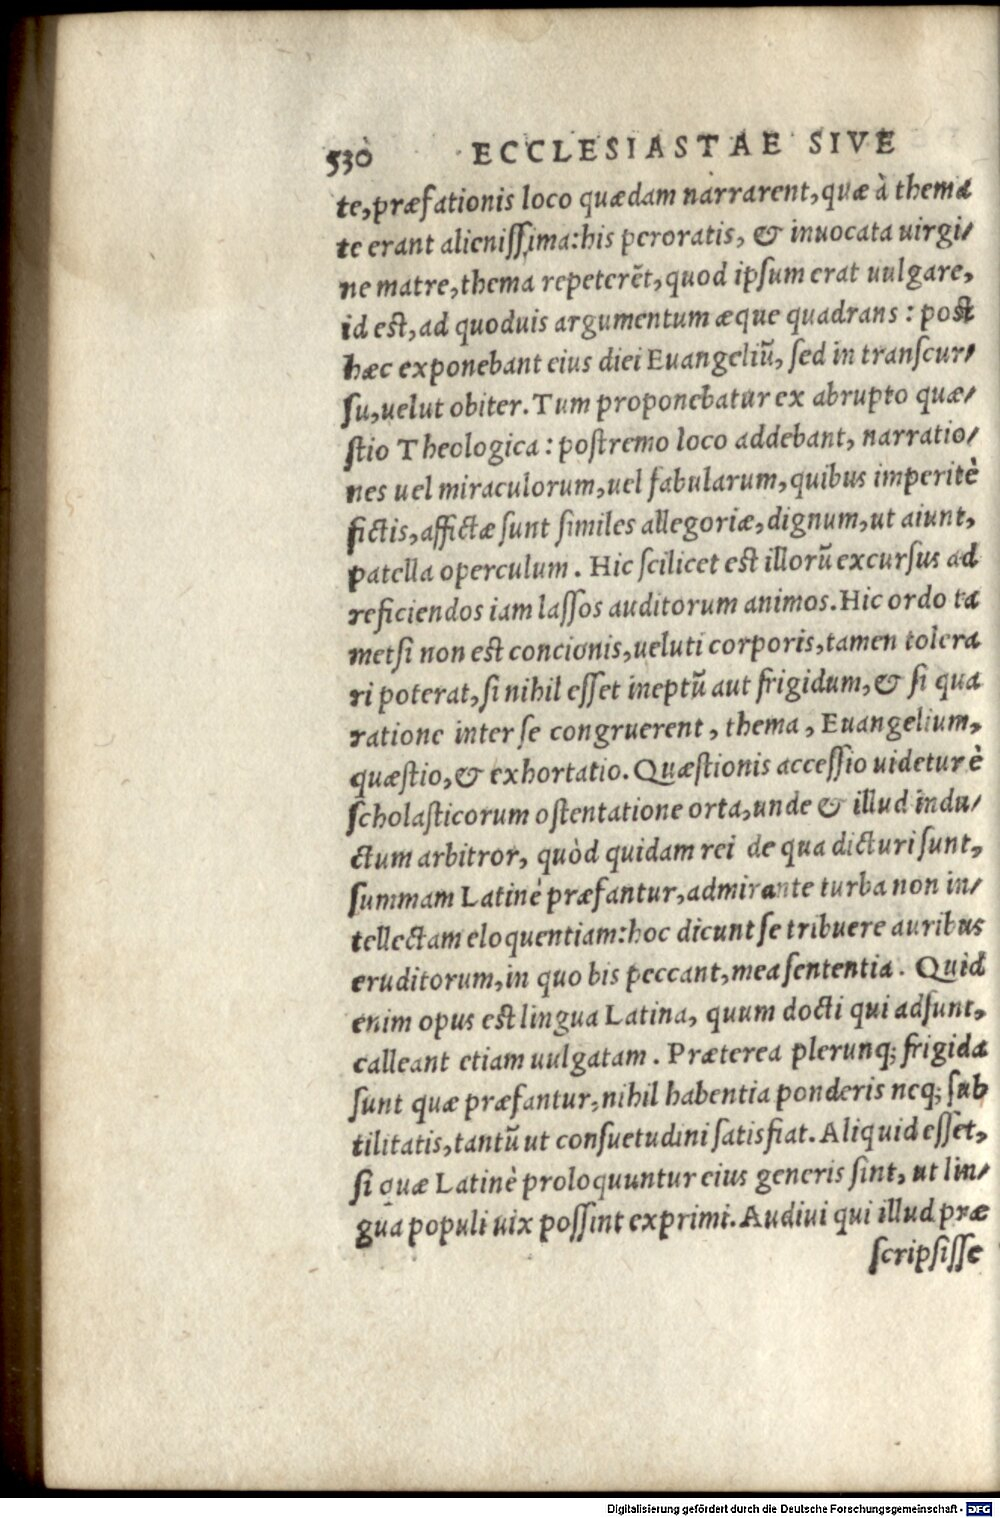 530 ECCLESIASTAE SIVE
te,præfationis loco quædam narrarent,quæ à thema
te erant alienißima:his peroratis, & inuocata uirgi/
ne matre,thema repeterēt,quod ipsum erat uulgare,
id est,ad quoduis argumentum æque quadrans : post
hæc exponebant eius diei Euangeliū, sed in transcur/
su,uelut obiter.Tum proponebatur ex abrupto quæ/
stio Theologica : postremo loco addebant, narratio/
nes uel miraculorum,uel fabularum,quibus imperitè
fictis,affictæ sunt similes allegoriæ,dignum,ut aiunt,
patella operculum . Hic scilicet est illorū excursus ad
reficiendos iam lassos auditorum animos.Hic ordo ta
metsi non est concionis,ueluti corporis,tamen tolera
ri poterat,si nihil esset ineptū aut frigidum,& si qua
ratione inter se congruerent , thema , Euangelium,
quæstio,& exhortatio.Quæstionis accessio uidetur è
scholasticorum ostentatione orta,unde & illud indu/
ctum arbitror, quòd quidam rei de qua dicturi sunt,
summam Latinè præfantur,admirante turba non in/
tellectam eloquentiam:hoc dicunt se tribuere auribus
eruditorum,in quo bis peccant,mea sententia . Quid
enim opus est lingua Latina, quum docti qui adsunt,
calleant etiam uulgatam . Præterea plerunq; frigida
sunt quæ præfantur,nihil habentia ponderis neq; sub
tilitatis,tantū ut consuetudini satisfiat.Aliquid esset,
si quæ Latinè proloquuntur eius generis sint, ut lin/
gua populi uix possint exprimi.Audiui qui illud præ
scripsisse
Digitalisierung gefördert durch die Deutsche Forschungsgemeinschaft - DFG